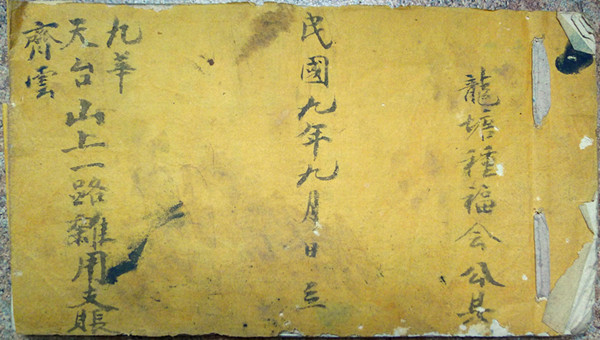 龍塘種福会公具
民國九年九月日立
九華
天台山上一路雜用支賬
齊雲